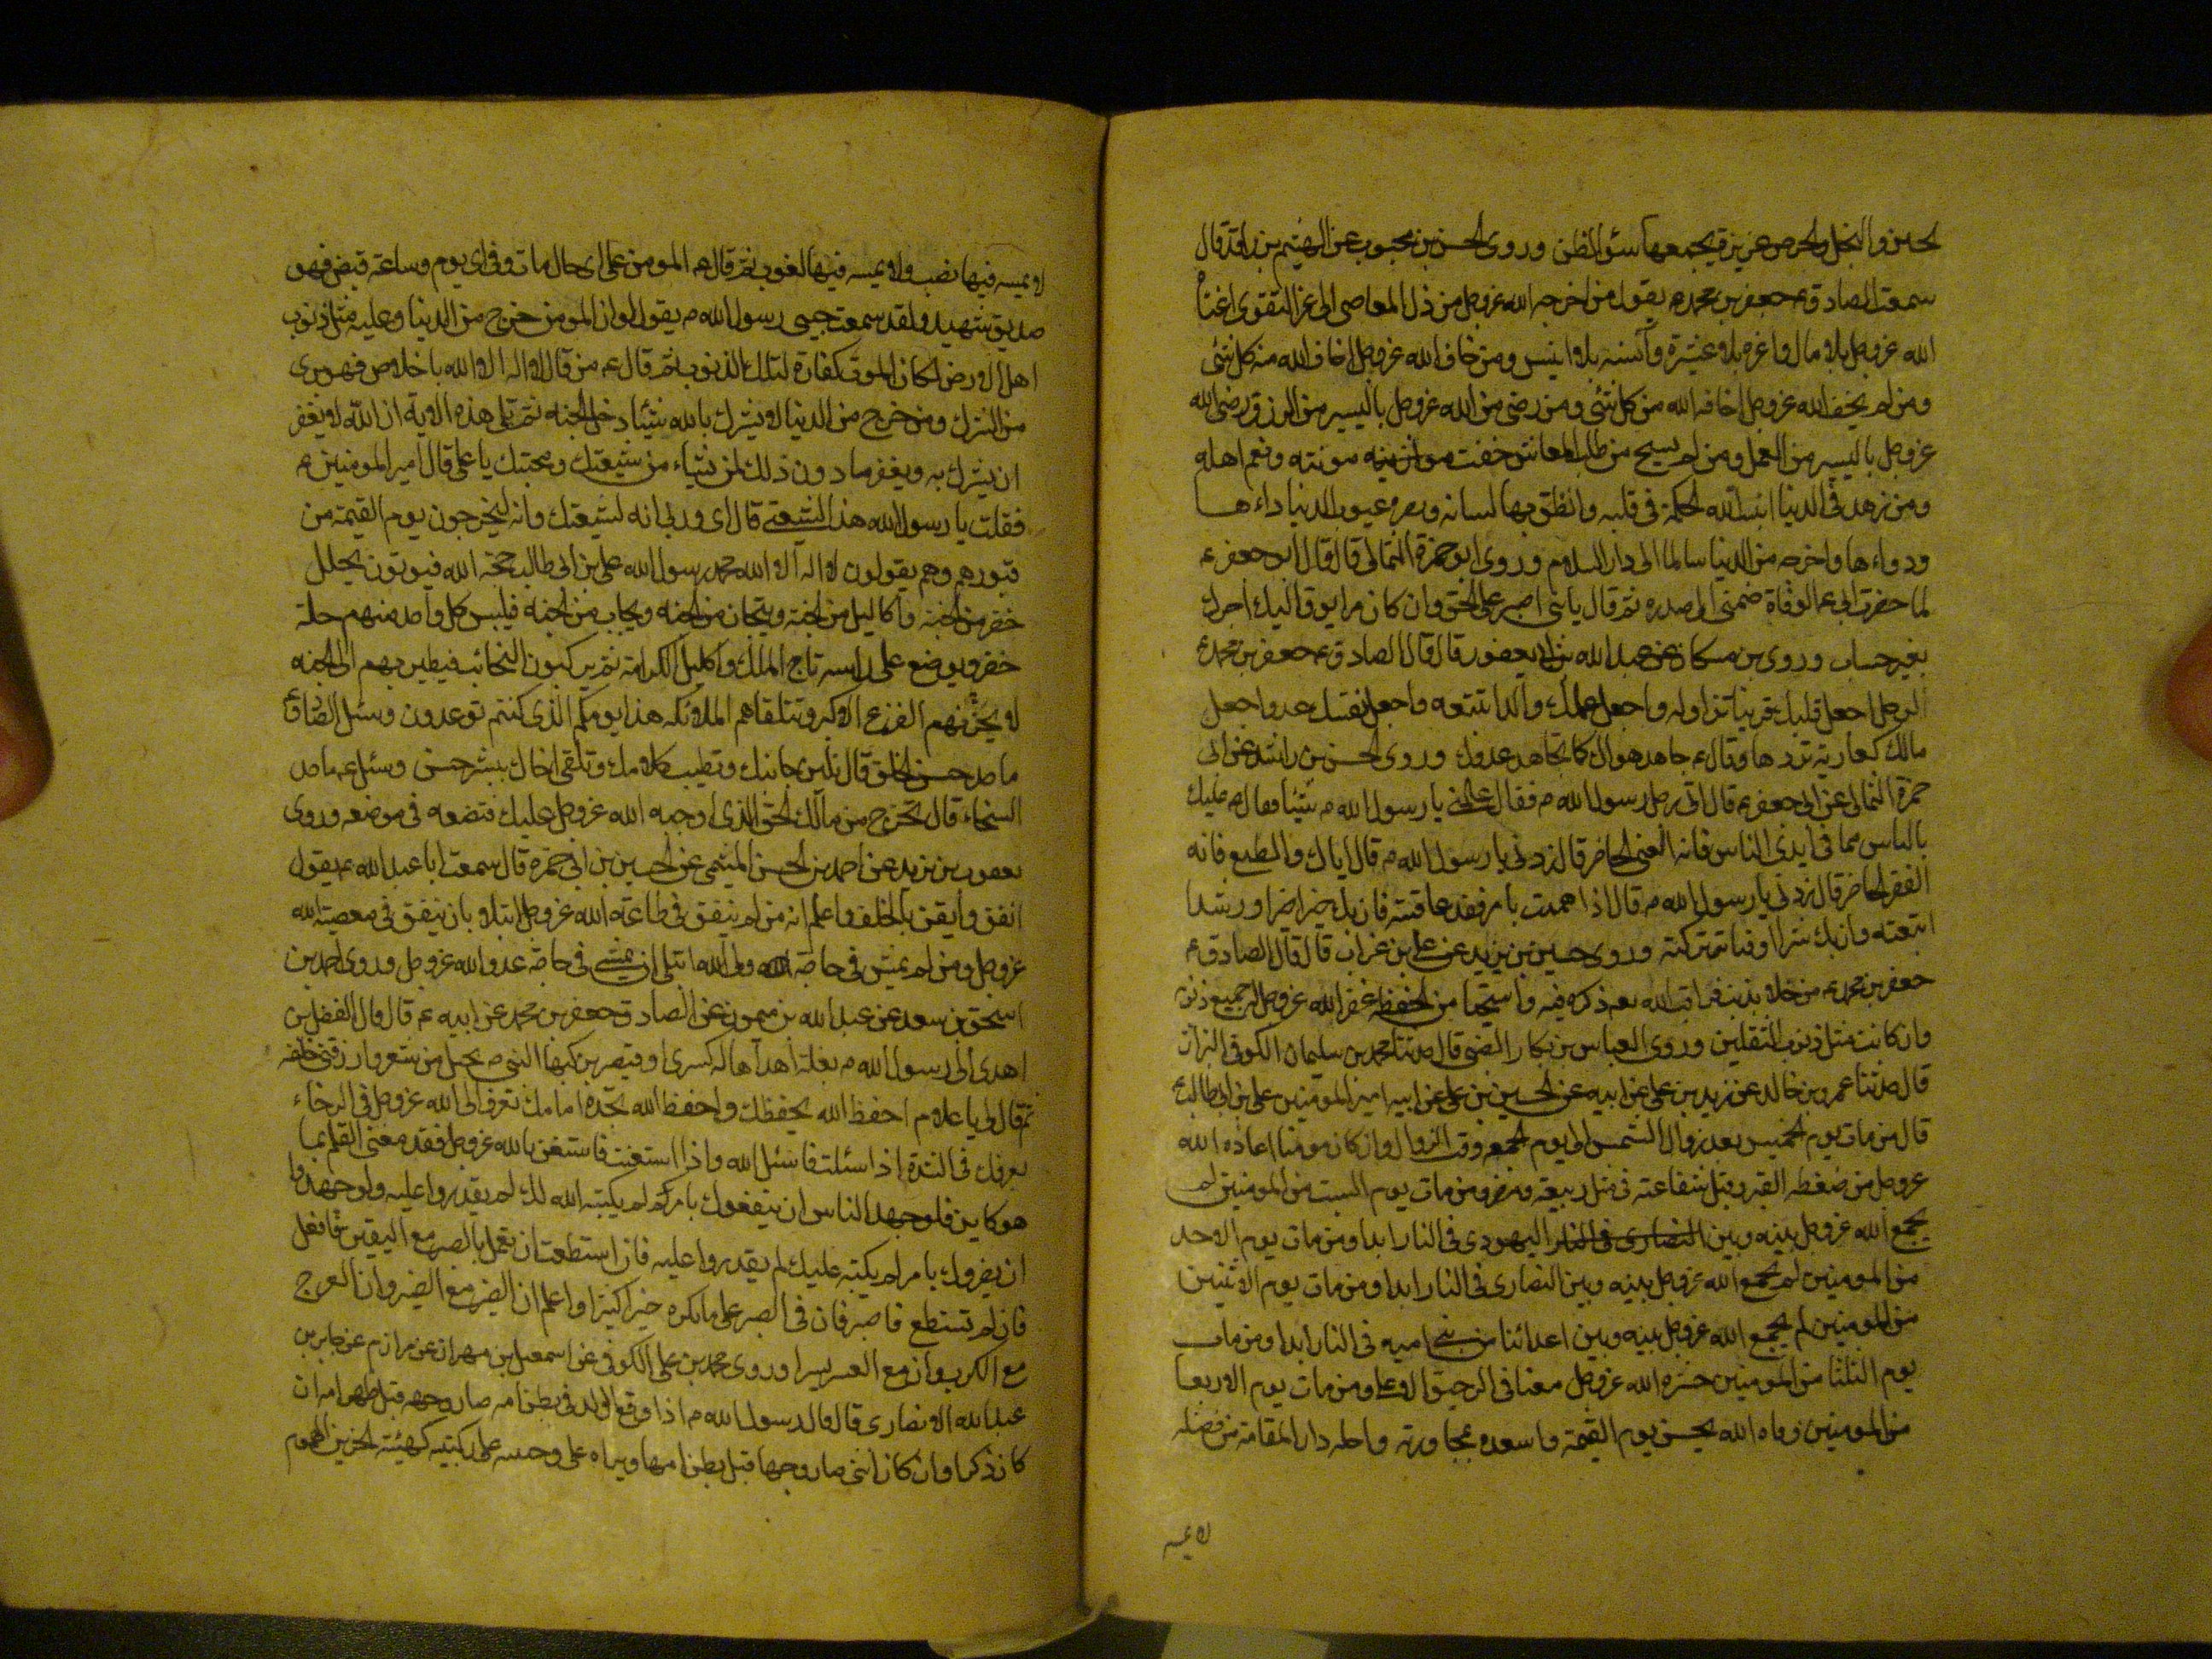 لجبن والبخل والحرص غريزة يجمعها سؤ الظن وروى الحسن بن محبوب عن الهيثم بن واقد قال
سمعت الصادق ع جعفر بن محمد ع يقول من اخرجه الله عز وجل من ذل المعاصى الى عز التقوى اغناه
الله عز وجل بلا مال واعزه بلا عشيرة وآنسه بلا انيس ومن خاف الله عز وجل اخاف الله منه كل شئ
ومن لم يخف الله عز وجل اخافه الله من كل شئ ومن رضى من الله عز وجل باليسير من الرزق رضى الله
عز وجل باليسير من العمل ومن لم يستحى من طلب المعاش خفت مونته ونعم اهله
ومن زهد فى الدنيا اثبت الله الحكمة فى قلبه وانطق بها لسانه وبصره عيوب الدنيا داءها
ودواءها واخرجه من الدنيا سالما الى دار السلام وروى ابو حمزة الثمالى قال قال ابو جعفر ع
لما حضرت ابى ع الوفاة ضمنى الى صدره ثم قال يا بنى اصبر على الحق وان كان مرا يوف اليك اجرك
بغير حساب وروى بن مسكان عن عبد الله بن ابى يعفور قال قال الصادق ع جعفر بن محمد ع
لرجل اجعل قلبك قرينا تزاوله واجعل عملك والدا تتبعه واجعل نفسك عدوا واجعل
مالك كعارية تردها وقال ع جاهد هواك كما تجاهد عدوك وروى الحسن بن راشد عن ابى
حمزة الثمالى عن ابى جعفر ع قال اتى رجل رسول الله ص فقال علمنى يا رسول الله ص شيئا فقال ع عليك
بالياس مما فى ايدى الناس فانه الغنى الحاضر قال زدنى يا رسول الله ص قال اياك والطمع فانه
الفقر الحاضر قال زدنى يا رسول الله ص قال اذا هممت بامر فتدبر عاقبته فان يك خيرا ورشدا
اتبعته وان يك شرا او غيا تركته وروى حسين بن يزيد عن على بن غراب قال قال الصادق ع
جعفر بن محمد ع من خلا بذنب فراقب الله تعالى ذكره فيه واستحيا من الحفظة غفر الله عز وجل له جميع ذنوبه
وان كانت مثل ذنوب الثقلين وروى العباس بن بكار الضبى قال حدثنا محمد بن سليمان الكوفى البزاز
قال حدثنا عمرو بن خالد عن زيد بن على عن ابيه عن الحسين بن على عن ابيه امير المومنين على بن ابى طالب ع
قال من مات يوم الخميس بعد زوال الشمس الى يوم الجمعه وقت الزوال وان كان مومنا اعاذه الله
عز وجل من ضغطه القبر وقبل شفاعته فى مثل ربيعة ومضر ومن مات يوم السبت من المومنين لم
يجمع الله عز وجل بينه وبين النصارى فى النار اليهودى فى النار ابدا ومن مات يوم الاحد
من المومنين لم يجمع الله عز وجل بينه وبين النصارى فى النار ابدا ومن مات يوم الاثنين
من المومنين لم يجمع الله عز وجل بينه وبين اعدائنا من بنى اميه فى النار ابدا ومن مات
يوم الثلثا من المومنين حشره الله عز وجل معنا فى الرفيق الاعلى ومن مات يوم الاربعا
من المومنين وقاه الله نحس يوم القيمة واسعده بمجاورته واحله دار المقامة من فضله
لا يمسه
لا يمسه فيها نصب ولا يمسه فيها لغوب ثم قال ع المومن على اى حال مات وفى اى يوم وساعة قبض فهو
صديق شهيد ولقد سمعت حبيبى رسول الله ص يقول لو ان المومن خرج من الدنيا وعليه مثل ذنوب
اهل الارض لكان الموت كفارة لتلك الذنوب ثم قال ع من قال لا اله الا الله باخلاص فهو برى
من الشرك ومن خرج من الدنيا لا يشرك بالله شيئا دخل الجنه ثم تلى هذه الاية ان الله لا يغفر
ان يشرك به ويغفر ما دون ذلك لمن يشاء من شيعتك ومحبيك يا على قال امير المومنين ع
فقلت يا رسول الله هذا لشيعتى قال اى وربى انه لشيعتك وانه ليخرجون يوم القيمة من
قبورهم وهم يقولون لا اله الا الله محمد رسول الله على بن ابى طالب حجة الله فيوتون بحلل
خضر من الجنه واكاليل من الجنة وتيجان من الجنه ونجايب من الجنه فيلبس كل واحد منهم حلة
خضر ويوضع على راسه تاج الملك واكليل الكرامة ثم يركبون النجائب فيطير بهم الى الجنه
لا يحزنهم الفزع الاكبر وتتلقاهم الملائكه هذا يومكم الذى كنتم توعدون وسئل الصادق ع
ما حد حسن الخلق قال تلين جانبك وتطيب كلامك وتلقى اخاك ببشر حسن وسئل ع ما حد
السخاء قال تخرج من مالك الحق الذى اوجبه الله عز وجل عليك فتضعه فى موضعه وروى
يعقوب بن يزيد عن احمد بن الحسن الميثمى عن الحسين بن ابى حمزه قال سمعت ابا عبد الله ع يقول
انفق وايقن بالخلف واعلم انه من لم ينفق فى طاعة الله عز وجل ابتلى بان ينفق فى معصية الله
عز وجل ومن لم يمش فى حاجة ولى الله ابتلى ان يمشى فى حاجة عدو الله عز وجل وروى احمد بن
اسحق بن سعد عن عبد الله بن ميمون عن الصادق جعفر بن محمد عن ابيه ع قال قال الفضل بن
اهدى الى رسول الله ص بغلة اهداها له كسرى او قيصر فركبها النبى ص بحبل من شعر واردفنى خلفه
ثم قال لى يا غلام احفظ الله يحفظك واحفظ الله تجده امامك تعرف الى الله عز وجل فى الرخاء
يعرفك فى الشدة اذا سئلت فاسئل الله واذا استعنت فاستعن بالله عز وجل فقد مضى القلم بما
هو كاين فلو جهد الناس ان ينفعوك بامر لم يكتبه الله لك لم يقدروا عليه ولو جهدوا
ان يضروك بامر لم يكتبه عليك لم يقدروا عليه فان استطعت ان تعمل بالصبر مع اليقين فافعل
فان لم تستطع فاصبر فان فى الصبر على ما تكره خيرا كثيرا واعلم ان النصر مع الصبر وان الفرج
مع الكرب وان مع العسر يسرا وروى محمد بن على الكوفى عن اسمعيل بن مهران عن مرازم عن جابر بن
عبد الله الانصارى قال قال رسول الله ص اذا وقع الولد فى بطن امه صار وجهه قبل ظهر امه ان
كان ذكرا وان كان انثى صار وجهها قبل بطن امها ويداه على وجنتيه على ركبتيه كهيئة الحزين المهموم